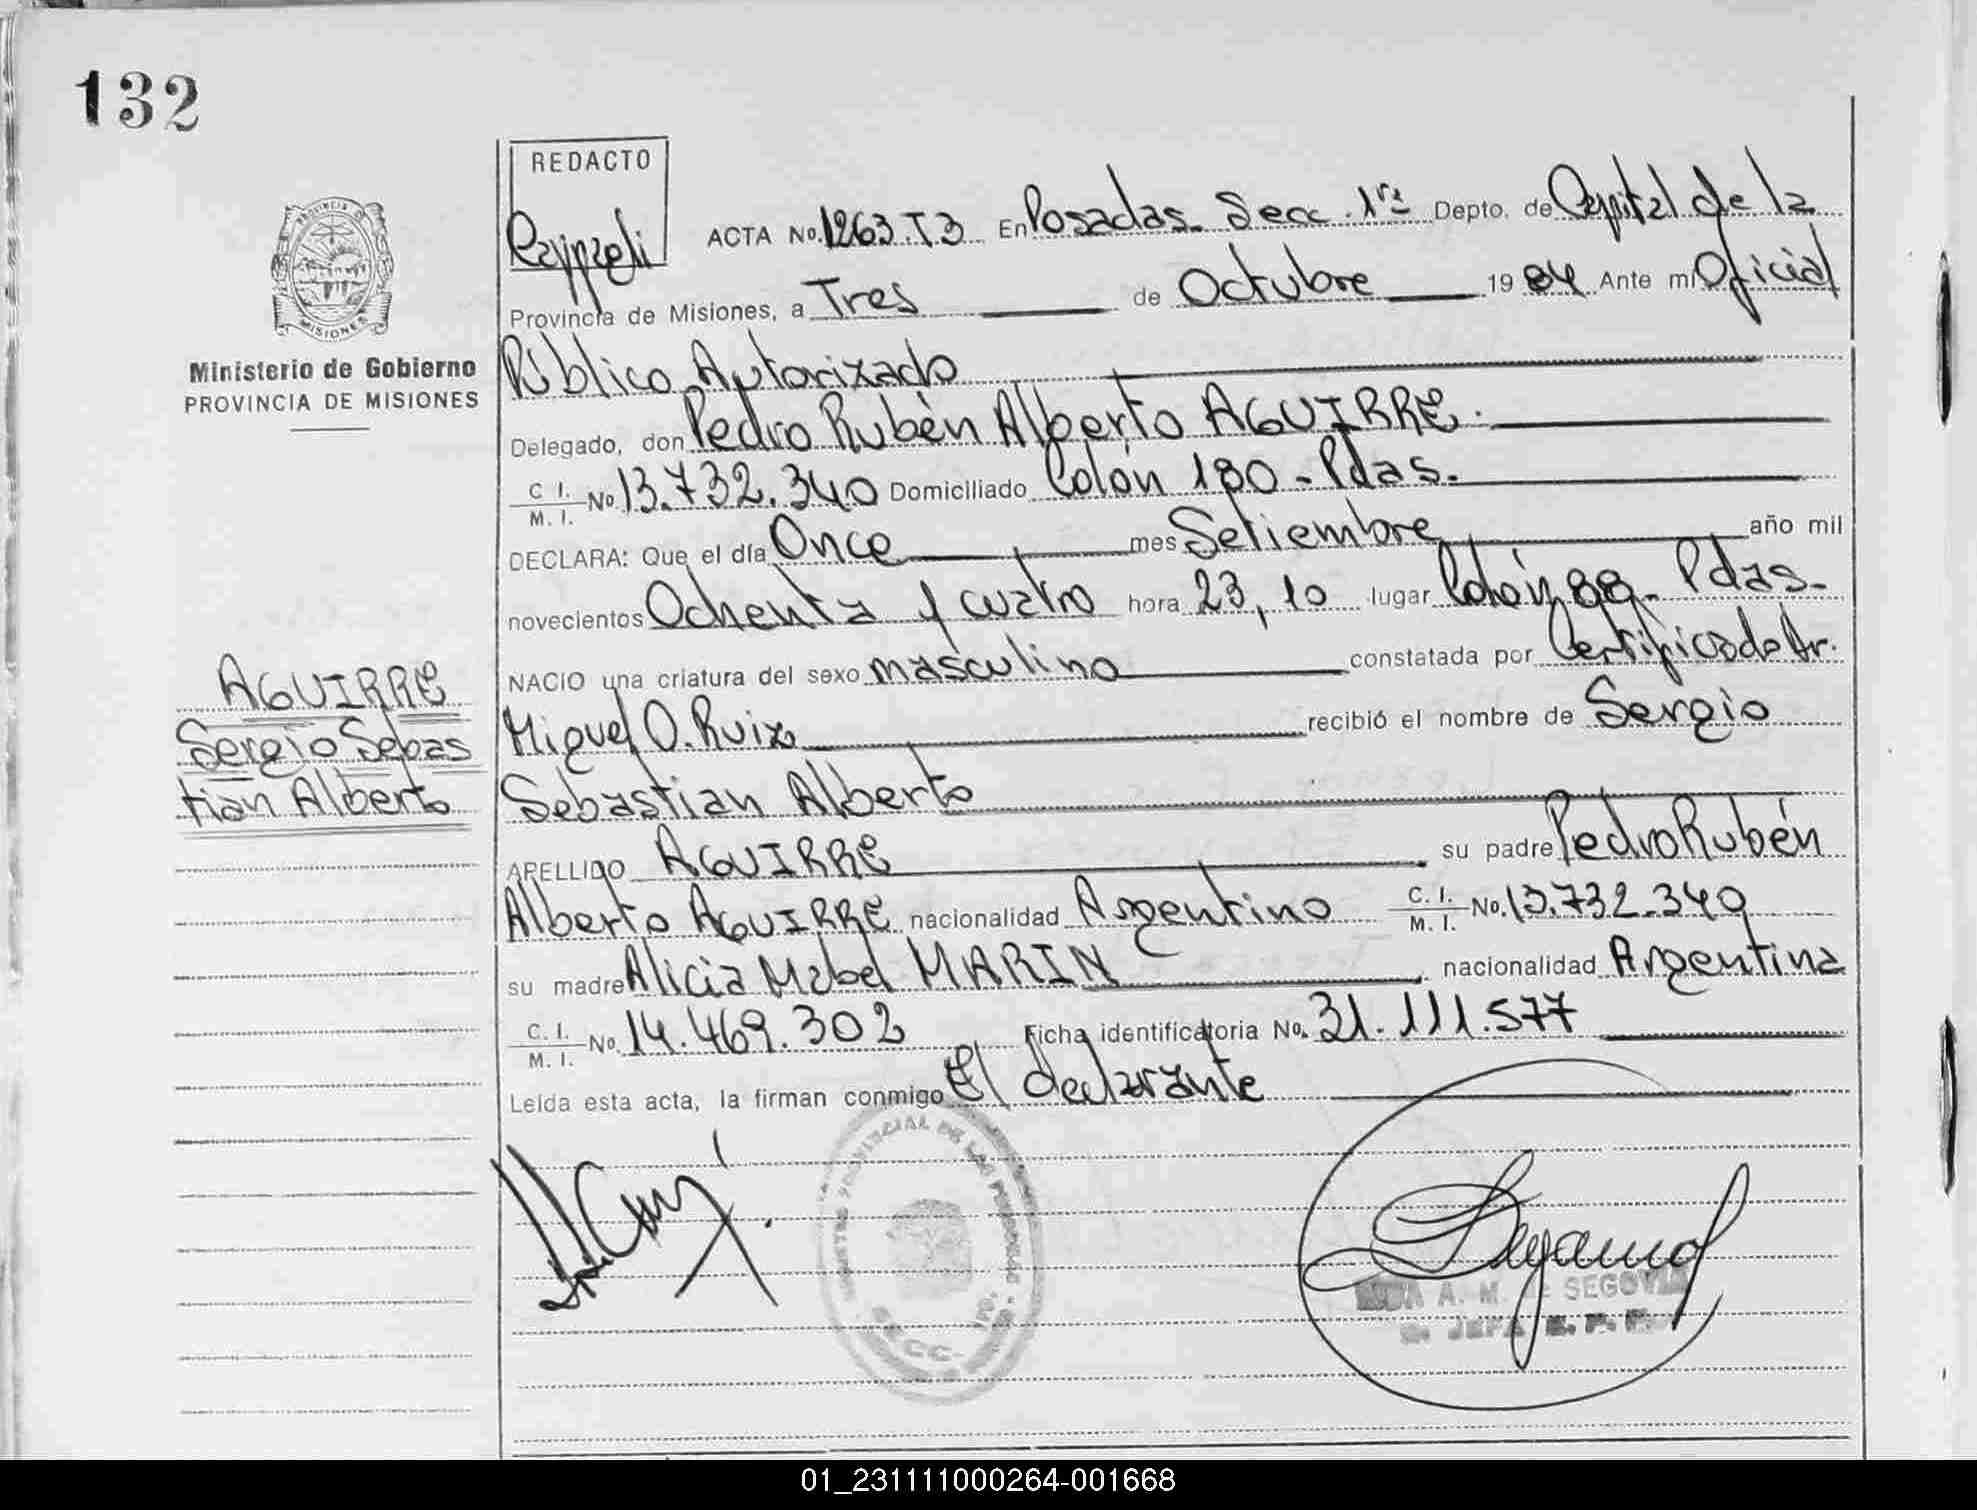 132
REDACTO
ACTA No. 1263.T3 En Posadas. Secc. 1ra Depto. de Capital de la
Provincia de Misiones, a Tres de Octubre 1984 Ante mi Oficial
Público Autorizado
Delegado, don Pedro Rubén Alberto AGUIRRE.
C I. M. I. No. 13.732.340 Domiciliado Colón 180 - Pdas.
DECLARA: Que el día Once mes Setiembre año mil
novecientos Ochenta y cuatro hora 23,10 lugar Colón 88 - Pdas.
NACIO una criatura del sexo masculino constatada por Certificado Dr.
Miguel O. Ruiz recibió el nombre de Sergio
Sebastian Alberto
APELLIDO AGUIRRE su padre Pedro Rubén
Alberto AGUIRRE nacionalidad Argentino C. I. M. I. No. 13.732.340
su madre Alicia Mabel MARIN nacionalidad Argentina
C. I. M. I. No. 14.469.302 Ficha identificatoria No. 31.111.577
Leida esta acta, la firman conmigo El declarante
PROVINCIA DE
MISIONES
Ministerio de Gobierno
PROVINCIA DE MISIONES
AGUIRRE
Sergio Sebas
tian Alberto
PROVINCIAL DE LAS PERSONAS
SECC. 1ra.
A. M. de SEGOVIA
JEFA
01_231111000264-001668